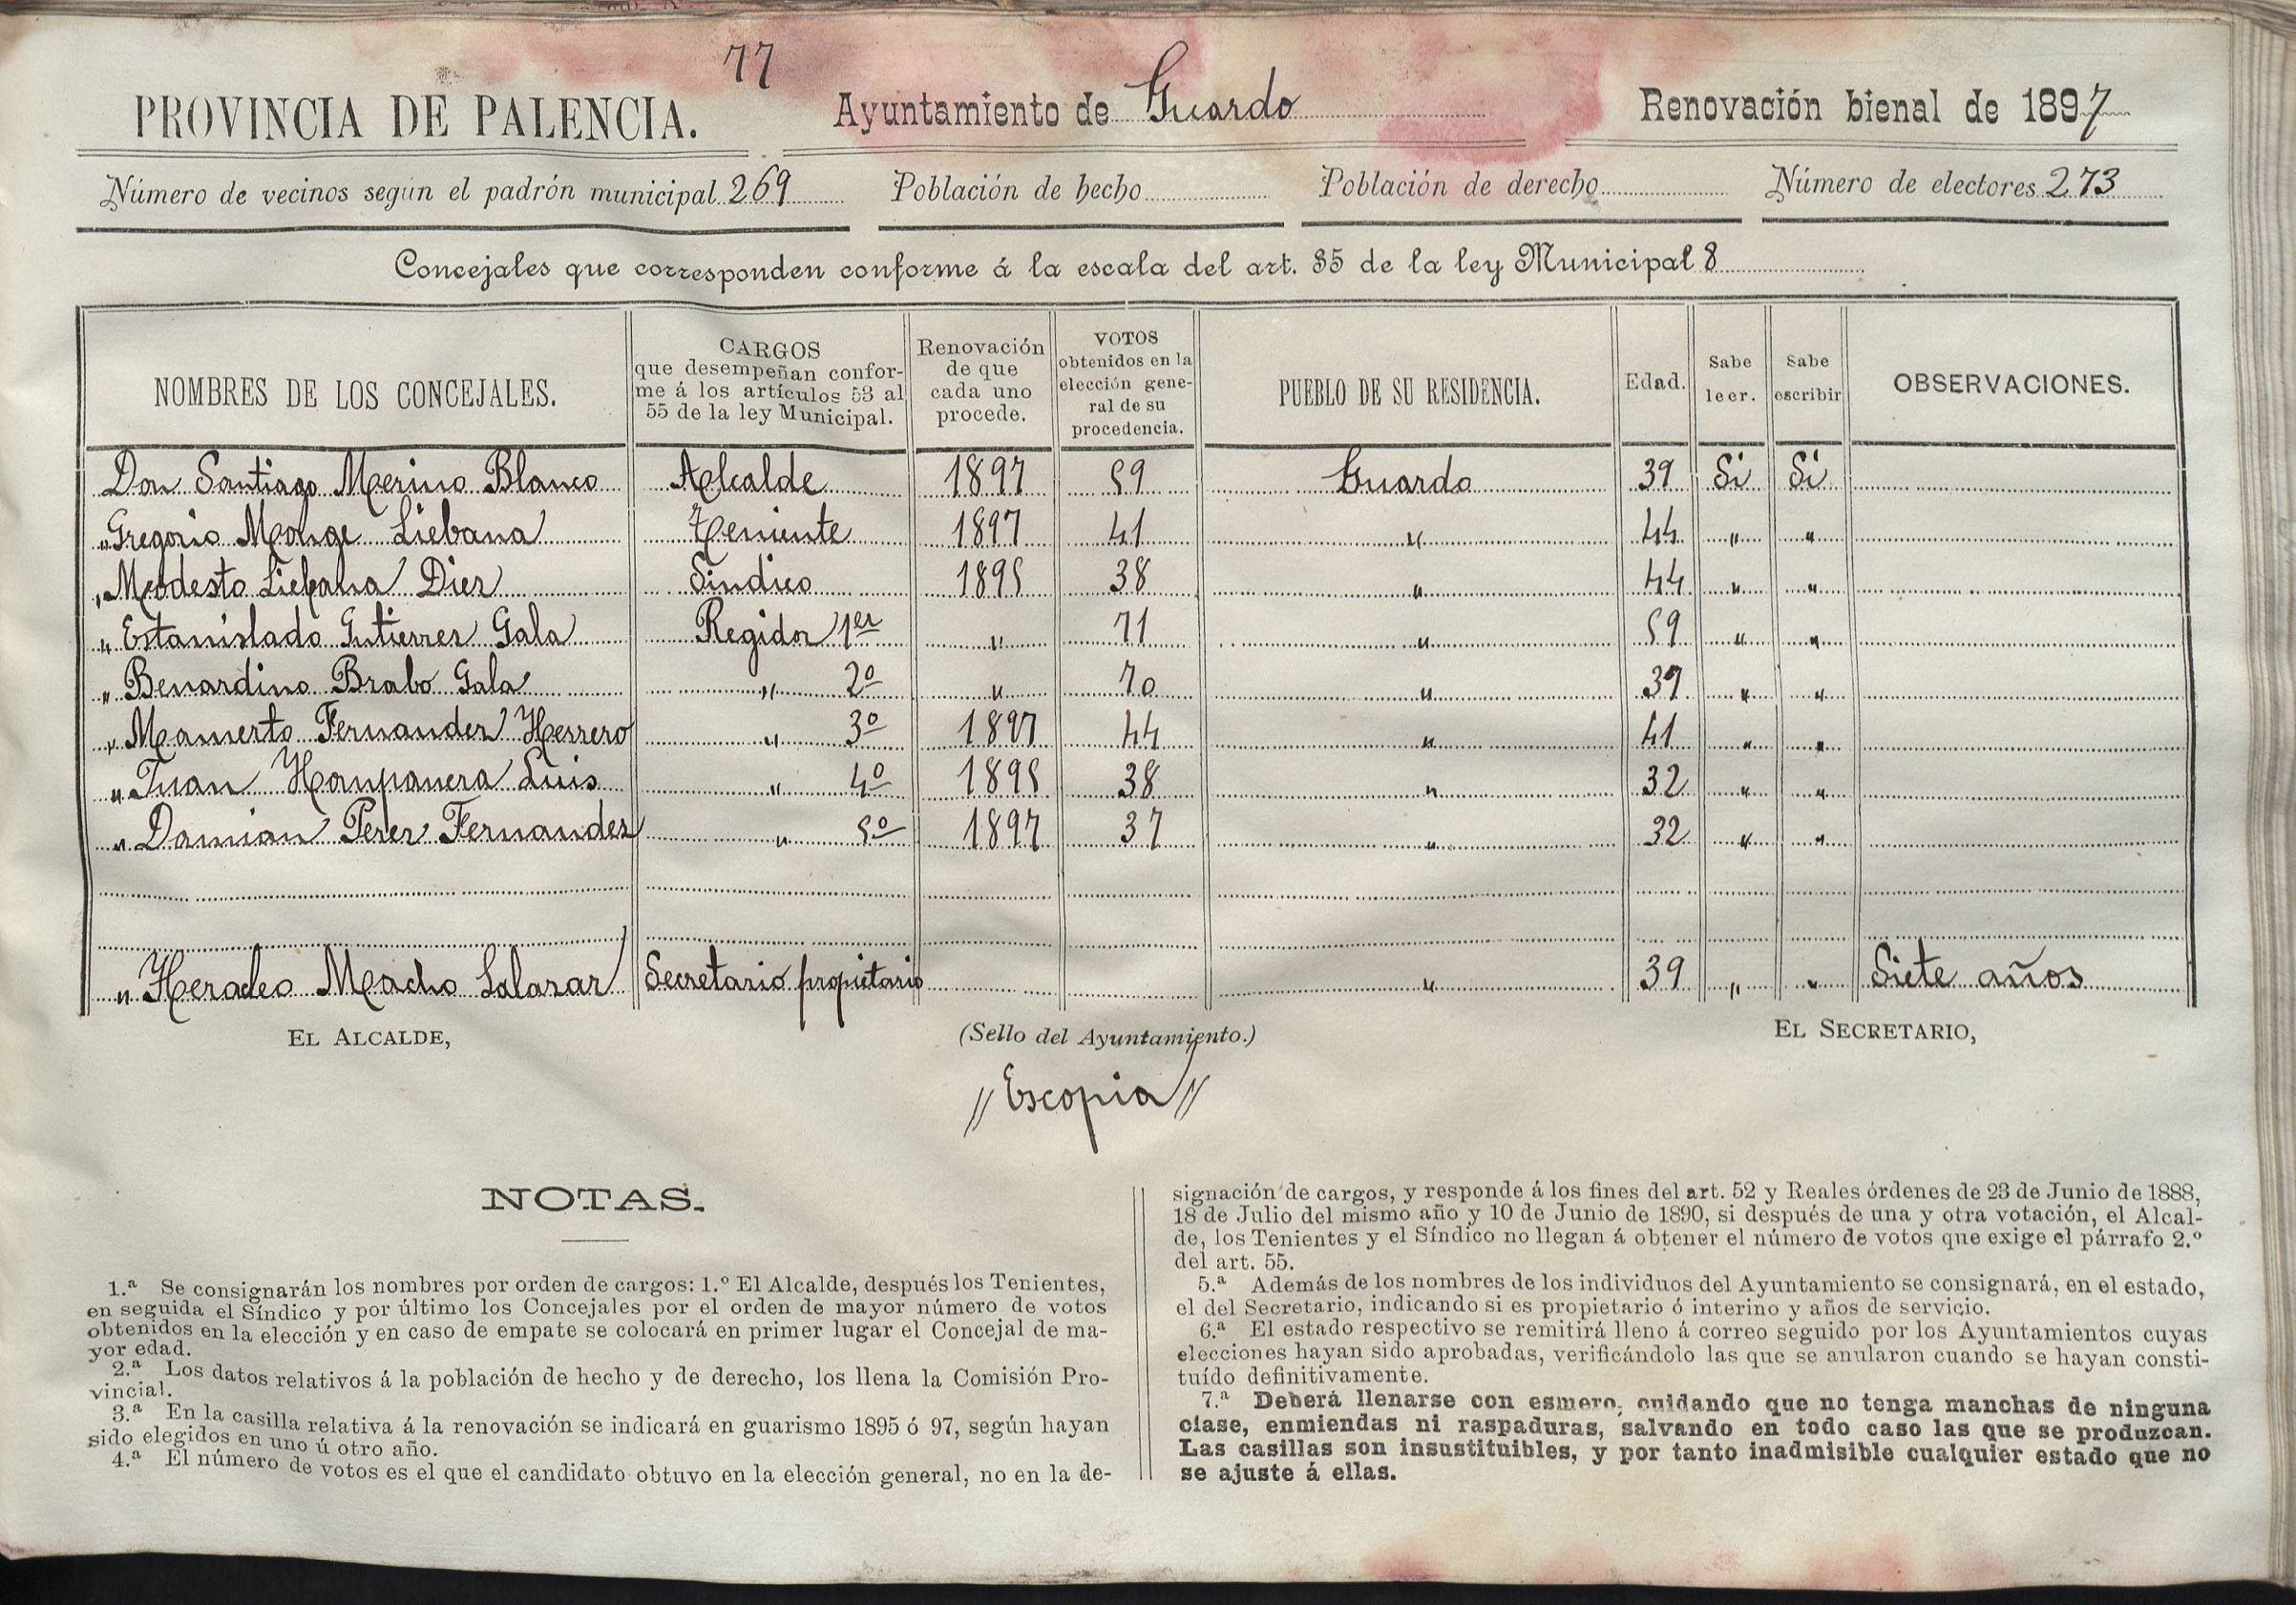 77
PROVINCIA DE PALENCIA. Ayuntamiento de Guardo Renovación bienal de 1897
Número de vecinos según el padrón municipal 269 Población de hecho Población de derecho Número de electores 273
Concejales que corresponden conforme á la escala del art. 35 de la ley Municipal 8
NOMBRES DE LOS CONCEJALES.
CARGOS
que desempeñan confor-
me á los artículos 53 al
55 de la ley Municipal.
Renovación
de que
cada uno
procede.
VOTOS
obtenidos en la
elección gene-
ral de su
procedencia.
PUEBLO DE SU RESIDENCIA.
Edad.
Sabe
leer.
Sabe
escribir
OBSERVACIONES.
Don Santiago Merino Blanco Alcalde 1897 59 Guardo 39 Si Si
" Gregorio Monge Liebana Teniente 1897 41 " 44 " "
" Modesto Liebana Diez Sindico 1895 38 " 44 " "
" Estanislado Gutierrez Gala Regidor 1er " 71 " 59 " "
" Benardino Brabo Gala " 2º " 70 " 37 " "
" Mamerto Fernandez Herrero " 3º 1897 44 " 41 " "
" Juan Hompanera Luis " 4º 1895 38 " 32 " "
" Damian Perez Fernandez " 5º 1897 37 " 32 " "
" Heracleo Macho Salazar Secretario propietario " 39 " " Siete años
EL ALCALDE, (Sello del Ayuntamiento.) EL SECRETARIO,
// Es copia //
NOTAS.
1.ª Se consignarán los nombres por orden de cargos: 1.º El Alcalde, después los Tenientes,
en seguida el Síndico y por último los Concejales por el orden de mayor número de votos
obtenidos en la elección y en caso de empate se colocará en primer lugar el Concejal de ma-
yor edad.
2.ª Los datos relativos á la población de hecho y de derecho, los llena la Comisión Pro-
vincial.
3.ª En la casilla relativa á la renovación se indicará en guarismo 1895 ó 97, según hayan
sido elegidos en uno ú otro año.
4.ª El número de votos es el que el candidato obtuvo en la elección general, no en la de-
signación de cargos, y responde á los fines del art. 52 y Reales órdenes de 23 de Junio de 1888,
18 de Julio del mismo año y 10 de Junio de 1890, si después de una y otra votación, el Alcal-
de, los Tenientes y el Síndico no llegan á obtener el número de votos que exige el párrafo 2.º
del art. 55.
5.ª Además de los nombres de los individuos del Ayuntamiento se consignará, en el estado,
el del Secretario, indicando si es propietario ó interino y años de servicio.
6.ª El estado respectivo se remitirá lleno á correo seguido por los Ayuntamientos cuyas
elecciones hayan sido aprobadas, verificándolo las que se anularon cuando se hayan consti-
tuído definitivamente.
7.ª Deberá llenarse con esmero, cuidando que no tenga manchas de ninguna
clase, enmiendas ni raspaduras, salvando en todo caso las que se produzcan.
Las casillas son insustituibles, y por tanto inadmisible cualquier estado que no
se ajuste á ellas.